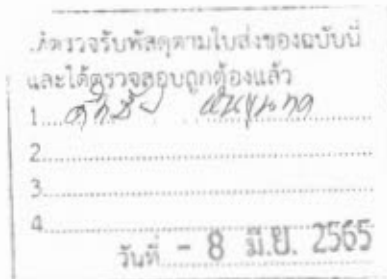 .ตรวจรับพัสดุตามใบส่งของฉบับนี้
และได้ตรวจสอบถูกต้องแล้ว
1
2
3
4
วันที่ - 8 มิ.ย. 2565